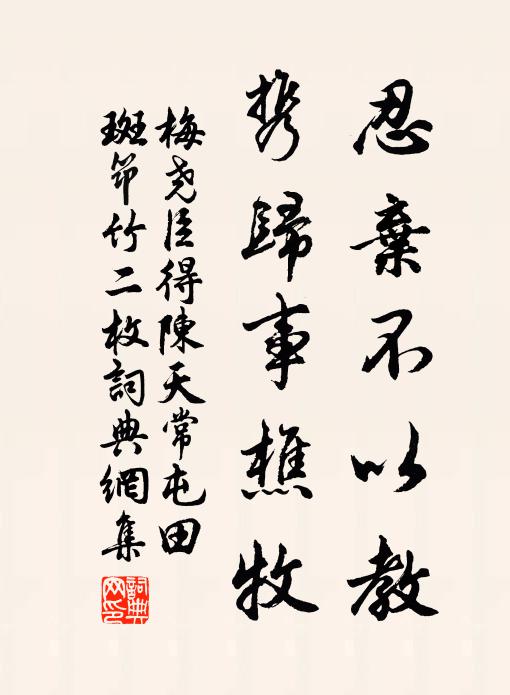 忍棄不以教
携歸事樵牧
梅尭臣得陳天常屯田
斑笻竹二枚詞典網集
詞典
网印